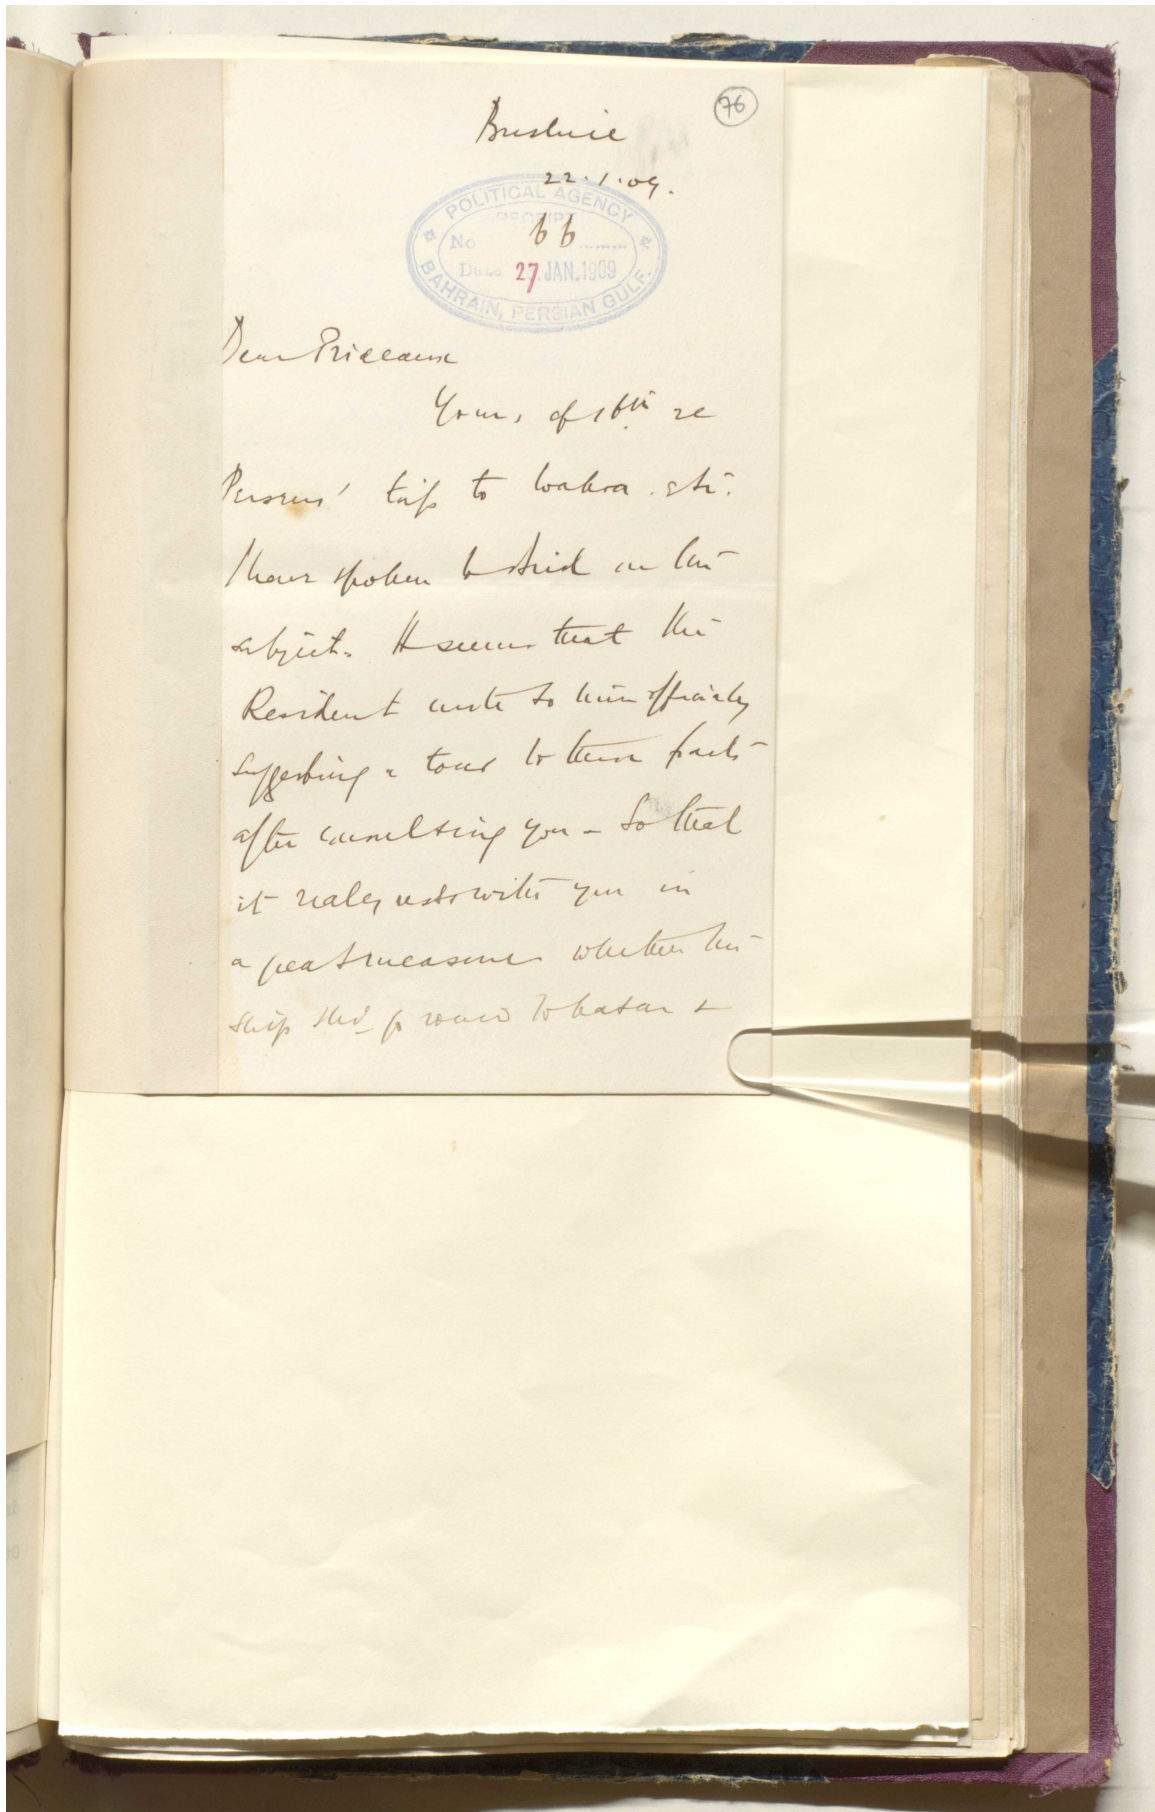 76
Bushire
22.1.09.
POLITICAL AGENCY
RECEIPT
No 66
Date 27 JAN. 1909
BAHRAIN, PERSIAN GULF.
Dear Prideaux
Yours of 16th re
Perseus' trip to Wakra etc.
I have spoken to on the
subject. It seems that the
Resident wrote to him officially
suggesting a tour to these parts
after consulting you - So that
it really rests with you in
a great measure whether the
ship shd go round to Katar &